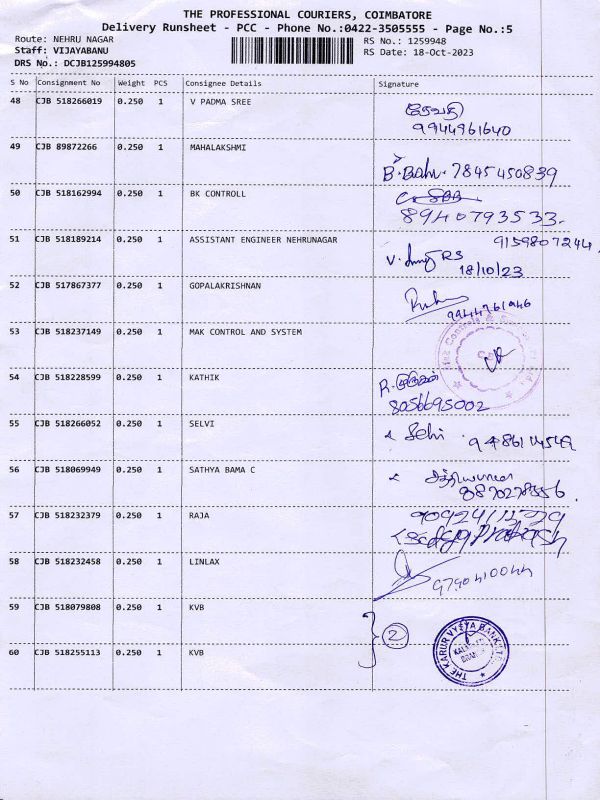 THE PROFESSIONAL COURIERS, COIMBATORE
Delivery Runsheet - PCC - Phone No.:0422-3505555 - Page No.:5
Route: NEHRU NAGAR
Staff: VIJAYABANU
DRS No.: DCJB125994805
RS No.: 1259948
RS Date: 18-Oct-2023
S No Consignment No Weight PCS Consignee Details Signature
48 CJB 518266019 0.250 1 V PADMA SREE
ரேவதி
9944961640
49 CJB 89872266 0.250 1 MAHALAKSHMI
B. 7845450839
50 CJB 518162994 0.250 1 BK CONTROLL
8940793533.
51 CJB 518189214 0.250 1 ASSISTANT ENGINEER NEHRUNAGAR
9159807244
V. RS
18/10/23
52 CJB 517867377 0.250 1 GOPALAKRISHNAN
53 CJB 518237149 0.250 1 MAK CONTROL AND SYSTEM
54 CJB 518228599 0.250 1 KATHIK
R. முருகன்
8056695002
55 CJB 518266052 0.250 1 SELVI
Selvi
56 CJB 518069949 0.250 1 SATHYA BAMA C
சத்தியபாமா
57 CJB 518232379 0.250 1 RAJA
58 CJB 518232458 0.250 1 LINLAX
59 CJB 518079808 0.250 1 KVB
2
THE KARUR VYSYA BANK LTD
60 CJB 518255113 0.250 1 KVB